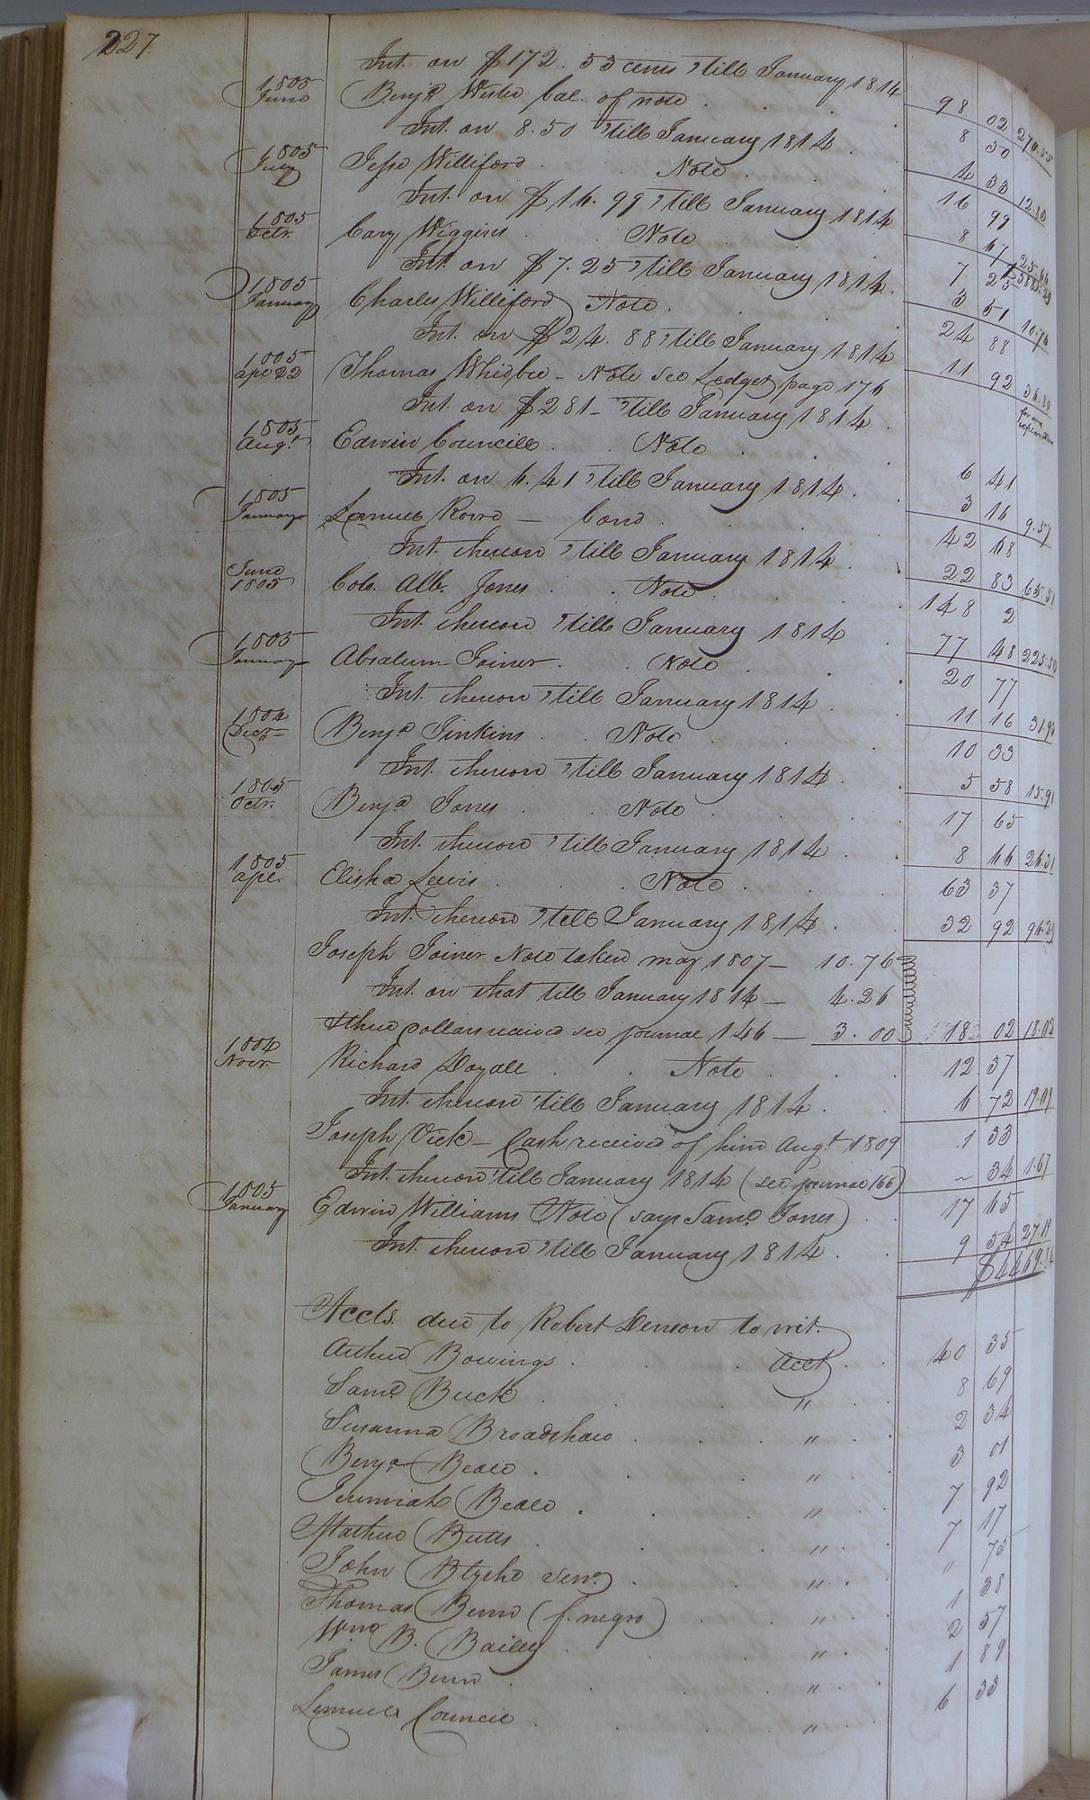 227.
Int. on $172. 53 cents 'till January 1814 98 02 270.55
1805 June Benja. Wester bal. of note 8 50
Int. on 8.50 'till January 1814 4 33 12.83
1805 July Jesse Williford Note 16 99
Int. on $16.99 'till January 1814 8 67 25.66
1805 Octr. Cary Wiggins Note 7 25
Int. on $7.25 'till January 1814 3 51 10.76
1805 January Charles Williford Note 24 88
Int. on $24.88 'till January 1814 11 92 36.80
1805 apl. 22 Thomas Whidbee - Note see Ledger page 176
Int. on $281- 'till January 1814
1805 Augt. Edwin Councill Note 6 41
Int. on 6.41 'till January 1814 3 16 9.57
1805 January Lemuel - bond 42 68
Int. thereon 'till January 1814 22 83 65.51
June 1805 Colo. Alb. Jones Note 148 2
Int. thereon 'till January 1814 77 48 225.50
1805 January Absalum Joiner Note 20 77
Int. thereon 'till January 1814 11 16 31.93
1804 Dect. Benja. Jinkins Note 10 33
Int. thereon 'till January 1814 5 58 15.91
1805 Octr. Benja. Jones Note 17 65
Int. thereon 'till January 1814 8 66 26.31
1805 apl. Elisha Lewis Note 63 37
Int. thereon 'till January 1814 32 92 96.29
Joseph Joiner Note taken may 1807 - 10.76
Int. on that till January 1814 - 4.26
three Dollars received see journal 146 - 3.00 18 02 18.02
1804 Novr. Richard Note 12 37
Int. thereon 'till January 1814 6 72 19.09
Joseph Vick - Cash received of him Augt. 1809 1 33
Int. thereon 'till January 1814 (see journal 166) - 34 1.67
1805 January Edwin Williams Note (says Saml. Jones) 17 65
Int. thereon 'till January 1814 9 54 27.19
Accts. due to Robert Denson to wit.
Arthur Bowings Acct 40 35
Saml. Buck " 8 69
Susanna Bradshaw " 2 34
Benja. Beale " 3 01
Jeremiah Beale " 7 92
Mathew Butts " 7 17
John senr. " " 75
Thomas (f. negro) " 1 38
Wm. B. Bailey " 2 57
James " 1 89
Lemuel Council " 6 33